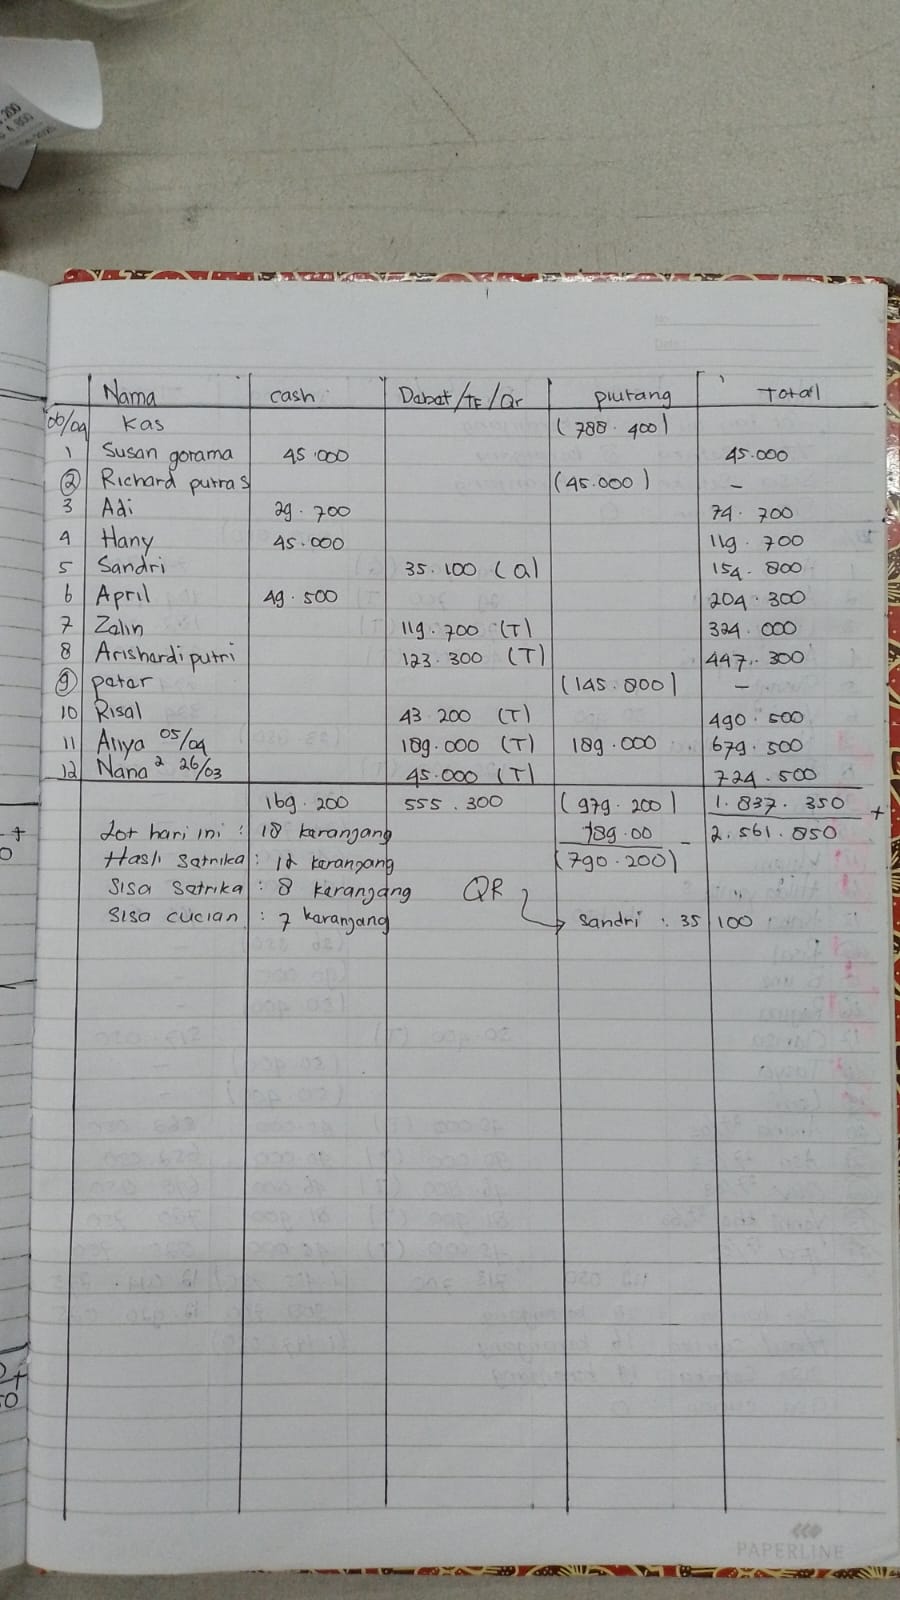 .200
4.800
No
Date
Nama cash Dabat/TF/Qr piutang Total
06/04 Kas (788.400)
1 Susan gorama 45.000 45.000
2 Richard putra s (45.000) -
3 Adi 29.700 74.700
4 Hany 45.000 119.700
5 Sandri 35.100 (Q) 154.800
6 April 49.500 204.300
7 Zalin 119.700 (T) 324.000
8 Arishardi putri 123.300 (T) 447.300
9 patar (145.800) -
10 Risal 43.200 (T) 490.500
11 Aliya 05/04 189.000 (T) 189.000 679.500
12 Nana² 26/03 45.000 (T) 724.500
169.200 555.300 (979.200) 1.837.350 +
Lot hari ini : 18 keranjang 189.00 - 2.561.850
Hasli Satrika : 12 keranjang (790.200)
Sisa Satrika : 8 keranjang QR
Sisa cucian : 7 keranjang Sandri : 35 100
PAPERLINE